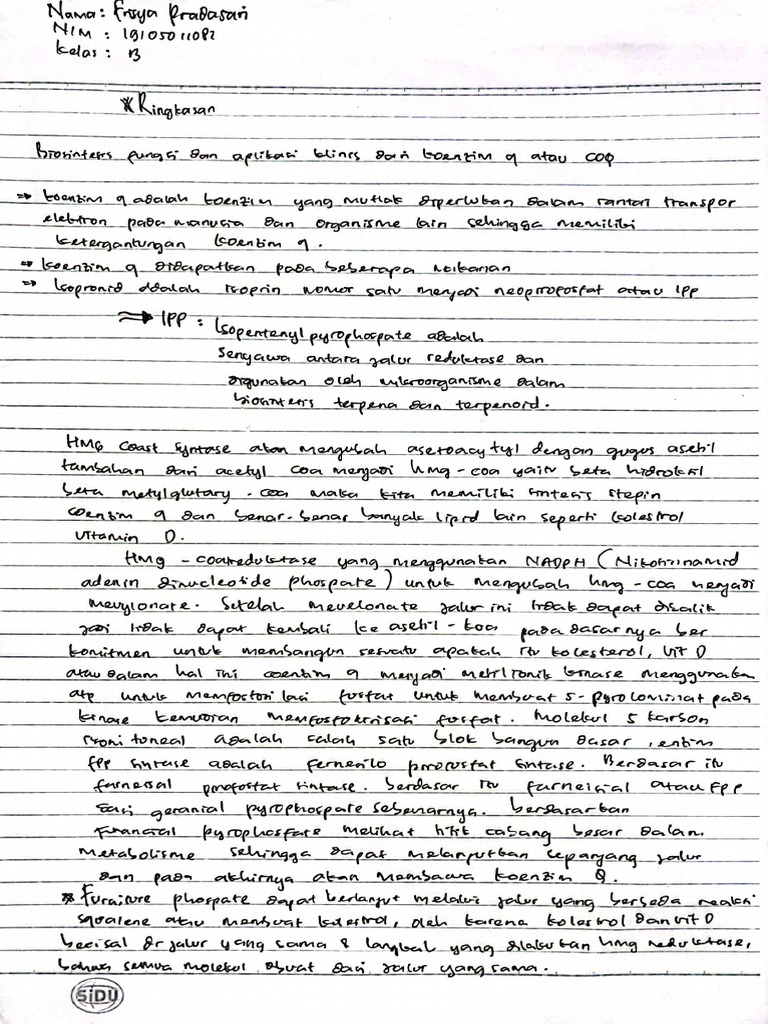 Nama : Frisya Pradasari
NIM : 19105011082
Kelas : B
* Ringkasan
Biosintesis fungsi dan aplikasi klinis dari koenzim q atau COQ
⇒ koenzim q adalah koenzim yang mutlak diperlukan dalam rantai transpor
elektron pada manusia dan organisme lain sehingga memiliki
ketergantungan koenzim q.
⇒ koenzim q didapatkan pada beberapa makanan
⇒ Isopronid adalah isoprin nomor satu menjadi neopirofosfat atau IPP
⇒ IPP : Isopentenyl pyrophospate adalah
senyawa antara jalur reduktase dan
digunakan oleh mikroorganisme dalam
biosintesis terpena dan terpenoid.
HMG coast syntase akan mengubah asetoacytyl dengan gugus asetil
tambahan dari acetyl coa menjadi hmg - coa yaitu beta hidroksil
beta metylglutary - coa maka kita memiliki sintesis stepin
coenzim q dan benar-benar banyak lipid lain seperti kolestrol
vitamin D.
HMG - coareduktase yang menggunakan NADPH (Nikotinamid
adenin dinucleotide phospate) untuk mengubah hmg - coa menjadi
mevylonate. Setelah mevelonate jalur ini tidak dapat dibalik
jadi tidak dapat kembali ke asetil - koa pada dasarnya ber
komitmen untuk membangun sesuatu apakah itu kolesterol, vit D
atau dalam hal ini coenzim q menjadi kinase menggunakan
atp untuk memfosforilasi fosfat untuk membuat 5 - pada
kinase kemudian fosfat. Molekul 5 karbon
adalah salah satu blok bangun dasar, enzim
fpp sintase adalah sintase. Berdasar itu
sintase. berdasar itu atau FPP
dari geranial pyrophospate sebenarnya. berdasarkan
pyrophosfate melihat titik cabang besar dalam
metabolisme sehingga dapat melanjutkan sepanjang jalur
dan pada akhirnya akan membawa koenzim Q.
* phospate dapat berlanjut melalui jalur yang berbeda reaksi
squalene atau membuat kolestrol, oleh karena kolestrol dan vit D
di jalur yang sama & langkah yang dilakukan hmg reduktase,
bahwa semua molekul dbuat dari jalur yang sama.
SiDU